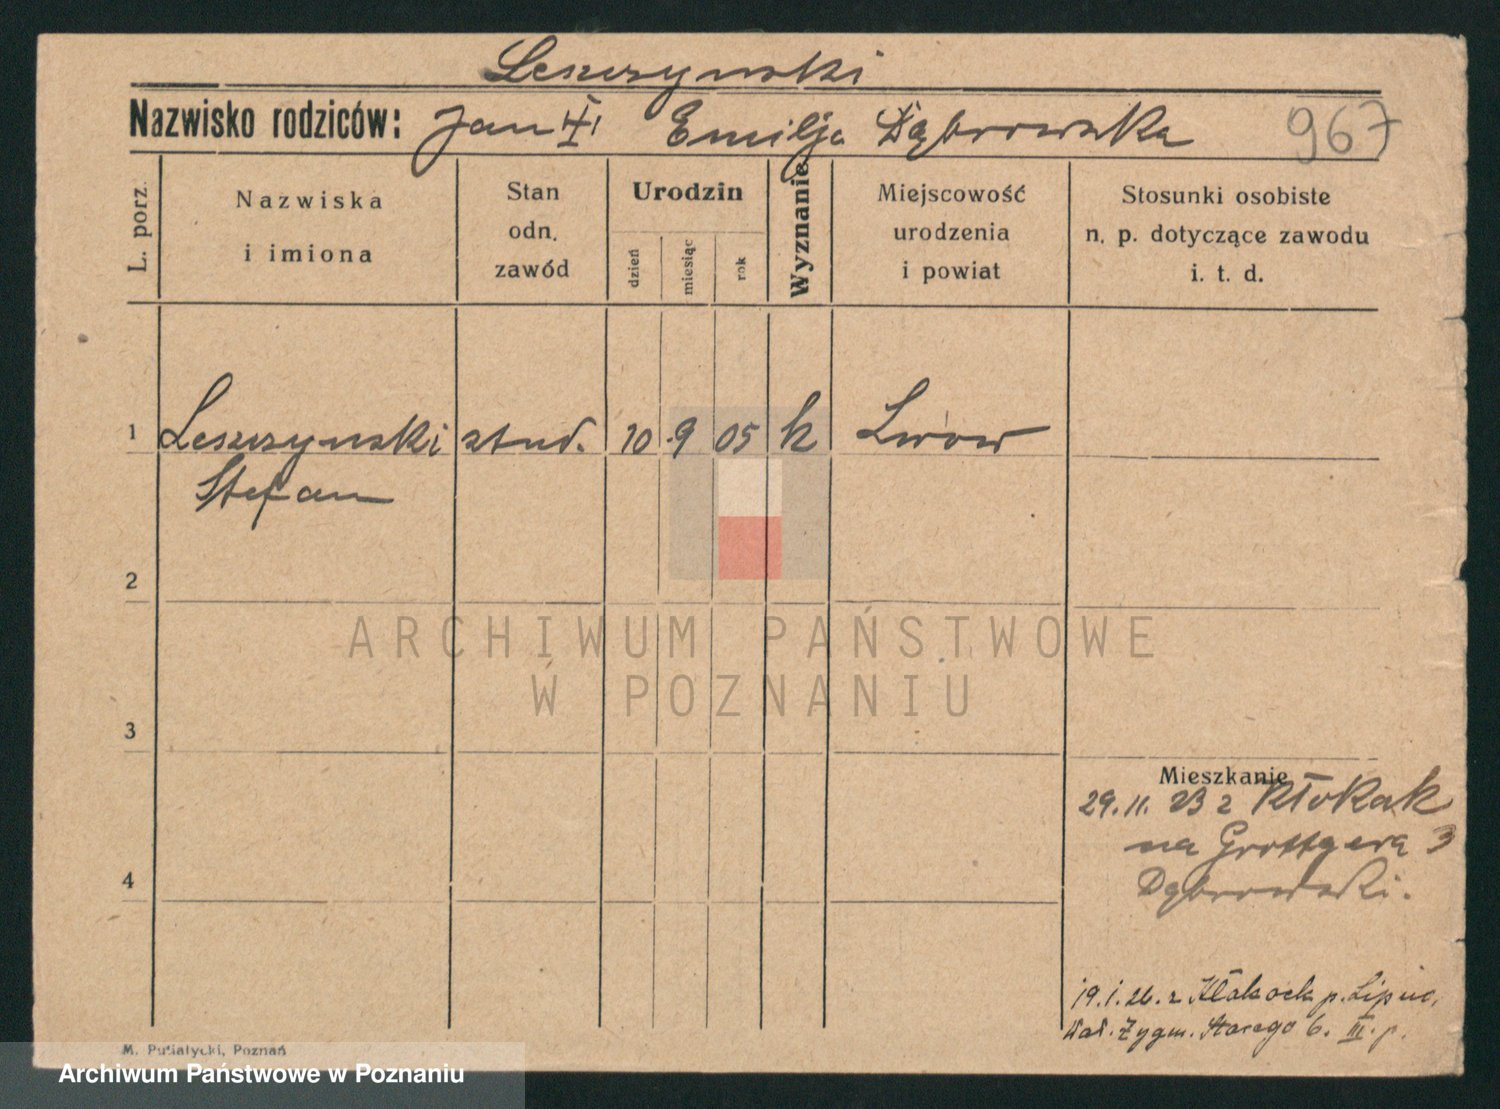 Leszczyński
Nazwisko rodziców: Jan Emilja Dąbrowska 967
L. porz.
Nazwiska
i imiona
Stan
odn.
zawód
Urodzin
dzień
miesiąc
rok
Wyznanie
Miejscowość
urodzenia
i powiat
Stosunki osobiste
n. p. dotyczące zawodu
i. t. d.
1 Leszczyński stud. 10 9 05 k Lwów
Stefan
2
ARCHIWUM PAŃSTWOWE
W POZNANIU
3
Mieszkanie
29. 11. 23 z Kłokak
na Grottgera 3
Dąbrowski.
4
19. 1. 26. z Kłokock p. Lipno,
Wał. Zygm. Starego 6. III. p.
M. Putiatycki, Poznań
Archiwum Państwowe w Poznaniu